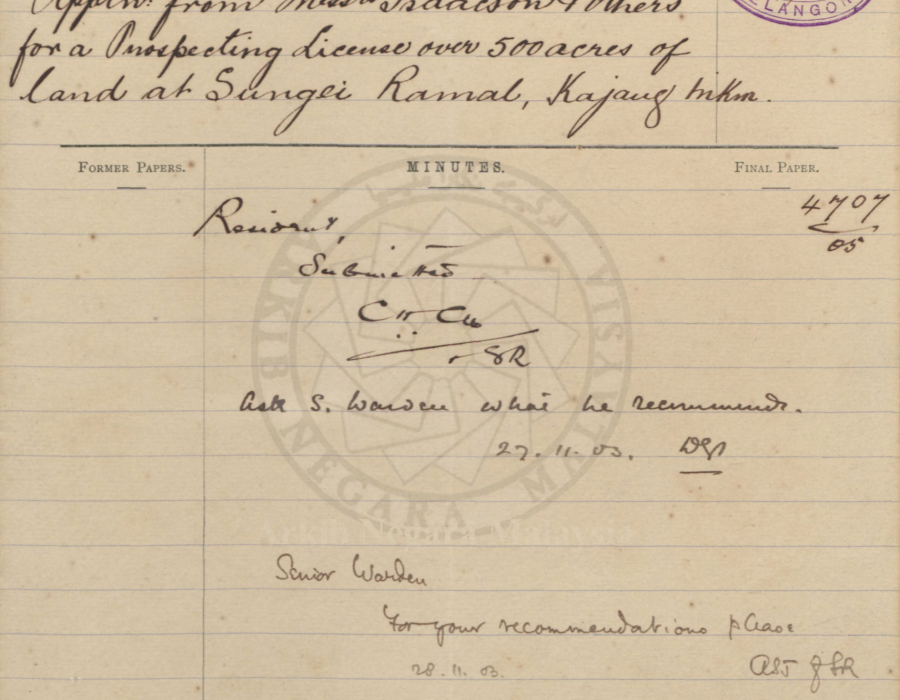 Appln: from Messrs Isaacson & others
for a Prospecting License over 500 acres of
land at Sungei Ramal, Kajang
LANGOR
FORMER PAPERS.
MINUTES.
FINAL PAPER.
4707
05
Resident,
Submitted
SR
Ask S. Warden what he recommends.
27.11.03.
Senior Warden
For your recommendations please
28.11.03.
ARKIB NEGARA MALAYSIA